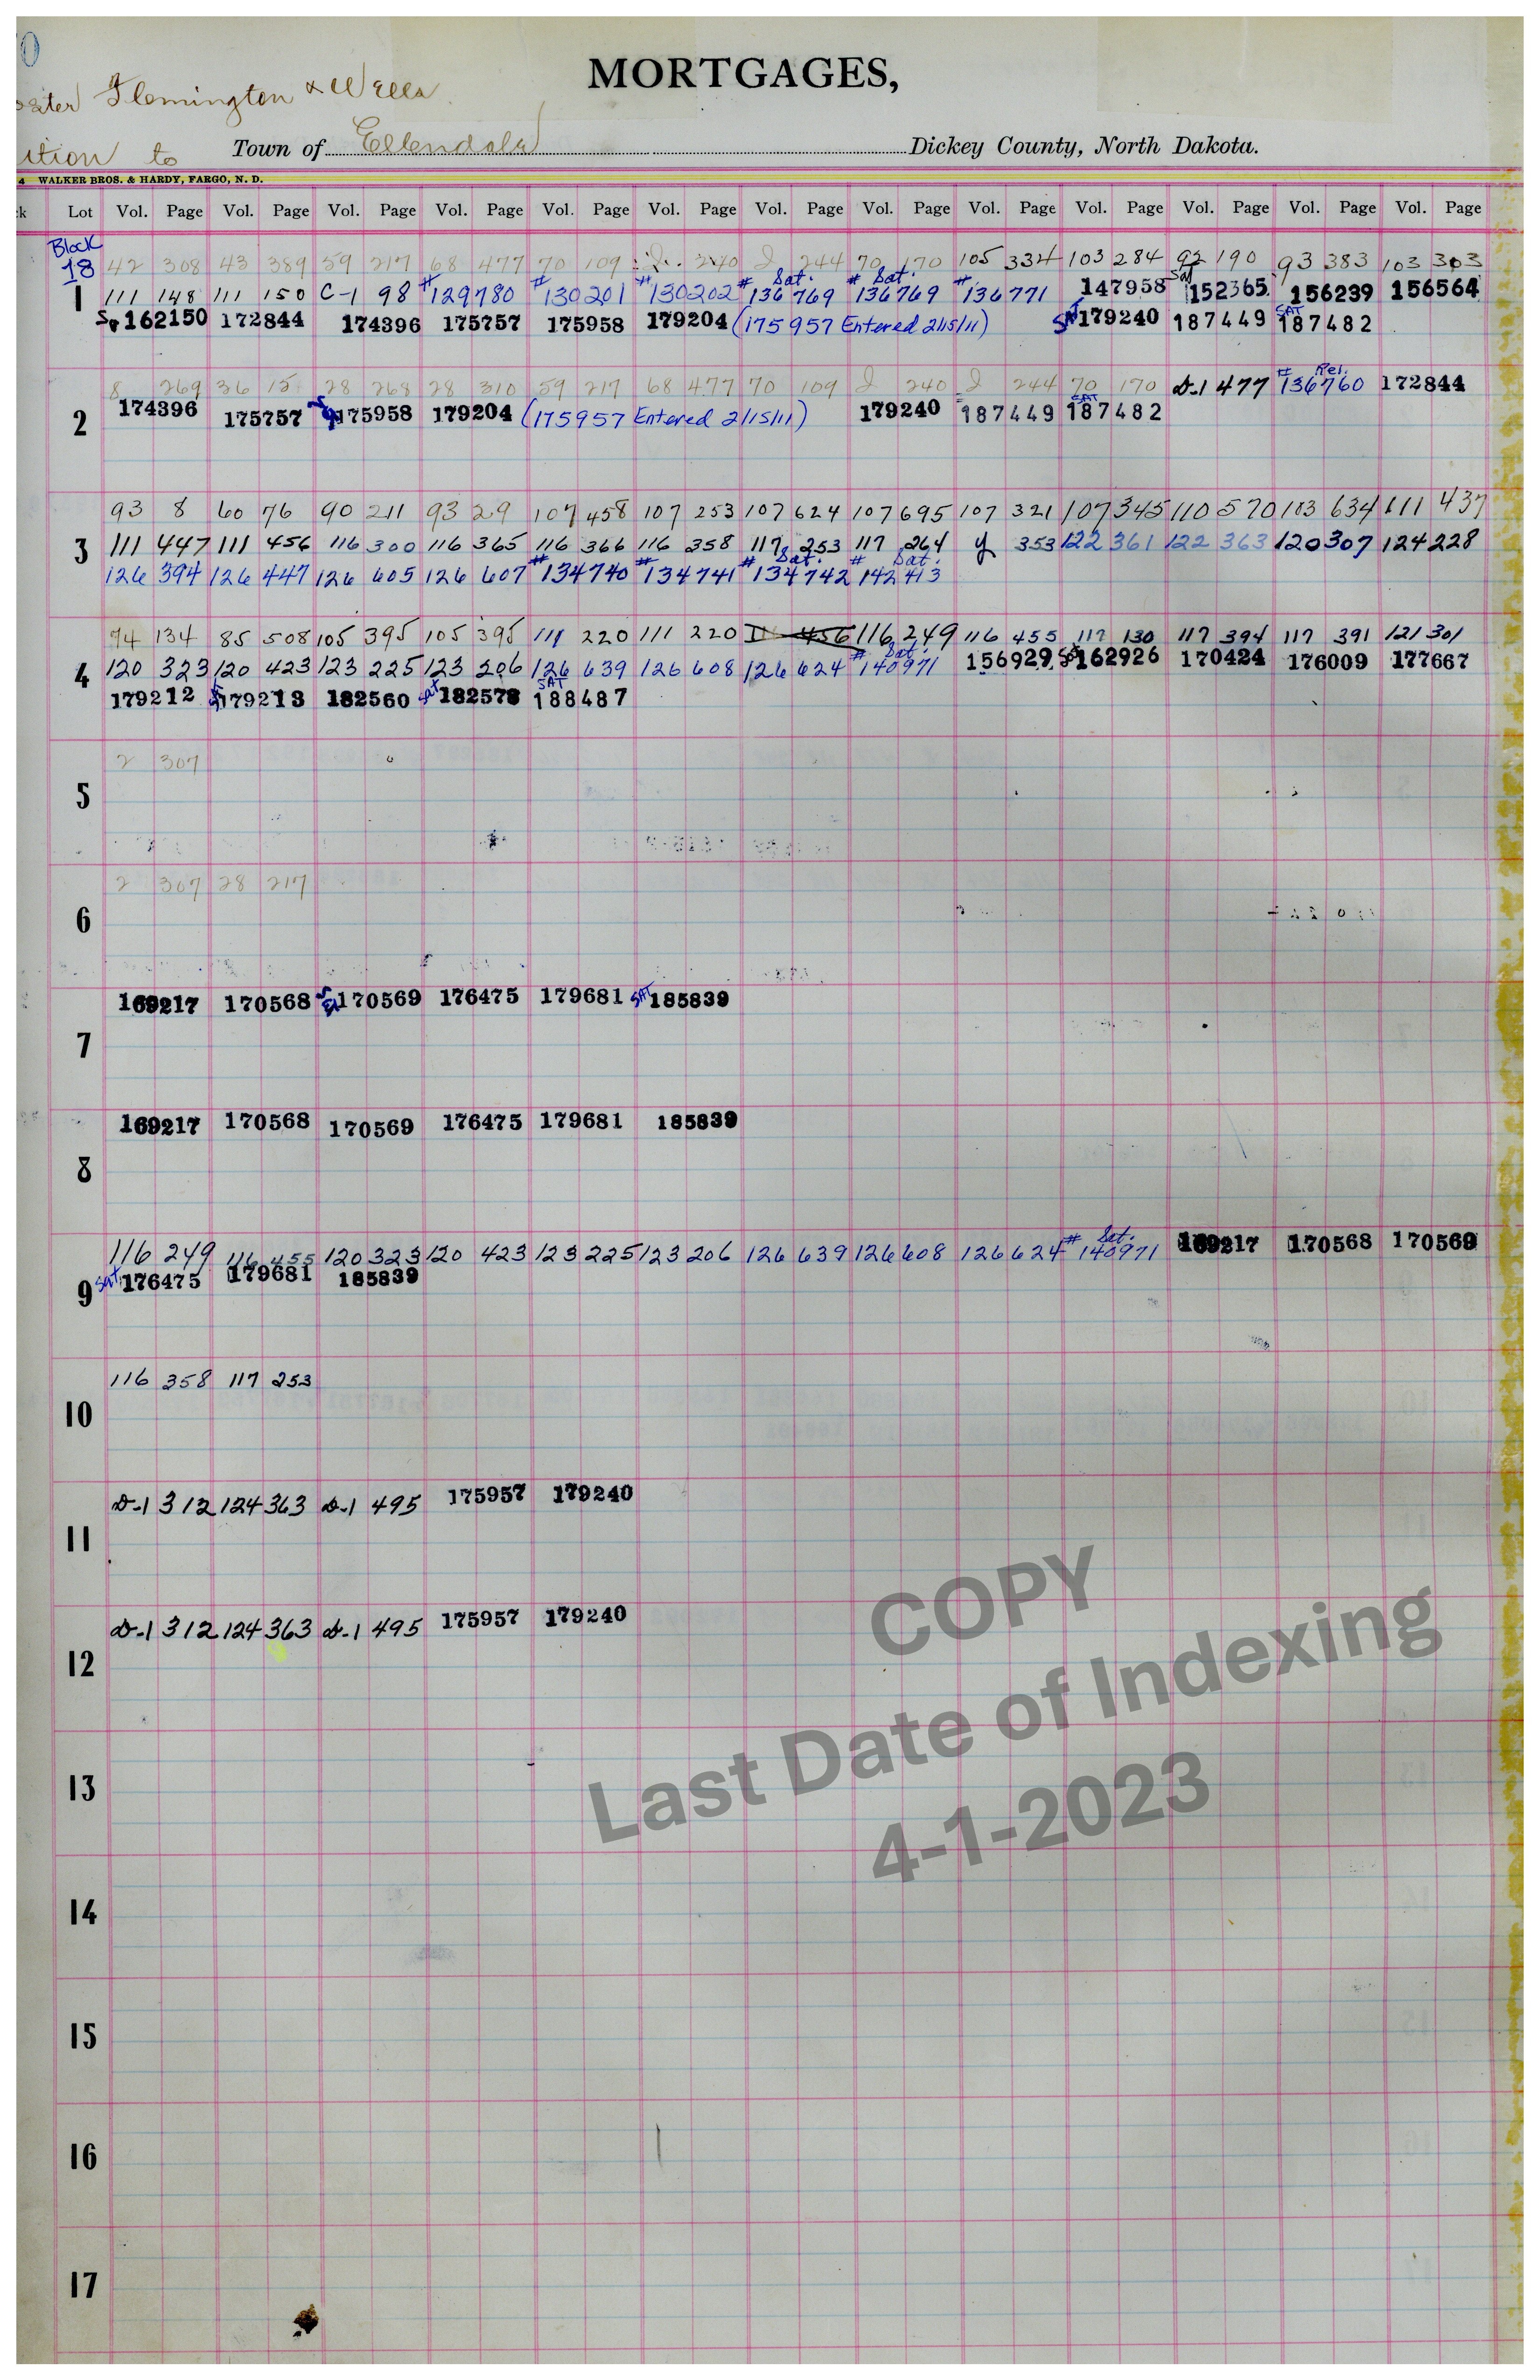 Flemington & Wells
MORTGAGES,
ition to Town of Ellendale Dickey County, North Dakota.
4 WALKER BROS. & HARDY, FARGO, N. D.
k Lot Vol. Page Vol. Page Vol. Page Vol. Page Vol. Page Vol. Page Vol. Page Vol. Page Vol. Page Vol. Page Vol. Page Vol. Page Vol. Page
Block
18 42 308 43 389 59 217 68 477 70 109 240 2 244 70 170 105 334 103 284 92 190 93 383 103 303
1 111 148 111 150 C-1 98 #129780 #130201 #130202 # Sat. 136769 # Sat. 136769 #136771 147958 Sat 152365 156239 156564
162150 172844 174396 175757 175958 179204 (175957 Entered 2/15/11) SAT 179240 187449 SAT 187482
8 269 36 15 28 268 28 310 59 217 68 477 70 109 2 240 2 244 70 170 D-1 477 # Rel. 136760 172844
2 174396 175757 175958 179204 (175957 Entered 2/15/11) 179240 187449 SAT 187482
93 8 60 76 90 211 93 29 107 458 107 253 107 624 107 695 107 321 107 345 110 570 103 634 111 437
3 111 447 111 456 116 300 116 365 116 366 116 358 117 253 117 264 y 353 122 363 120 307 124 228
126 394 126 447 126 605 126 607 #134740 #134741 # Sat. 134742 # Sat. 142413
74 134 85 508 105 395 105 395 111 220 111 220 456 116 249 116 455 117 130 117 394 117 391 121 301
4 120 323 120 423 123 225 123 206 126 639 126 608 126 624 # Sat. 140971 156929 Sat 162926 170424 176009 177667
179212 179213 182560 Sat 182578 SAT 188487
2 307
5
2 307 28 217
6
169217 170568 170569 176475 179681 SAT 185839
7
169217 170568 170569 176475 179681 185839
8
116 249 116 455 120 323 120 423 123 225 123 206 126 639 126 608 126 624 # Sat. 140971 169217 170568 170569
9 Sat. 176475 179681 185839
116 358 117 253
10
D-1 312 124 363 D-1 495 175957 179240
11
D-1 312 124 363 D-1 495 175957 179240
12
13
14
15
16
17
COPY
Last Date of Indexing
4-1-2023